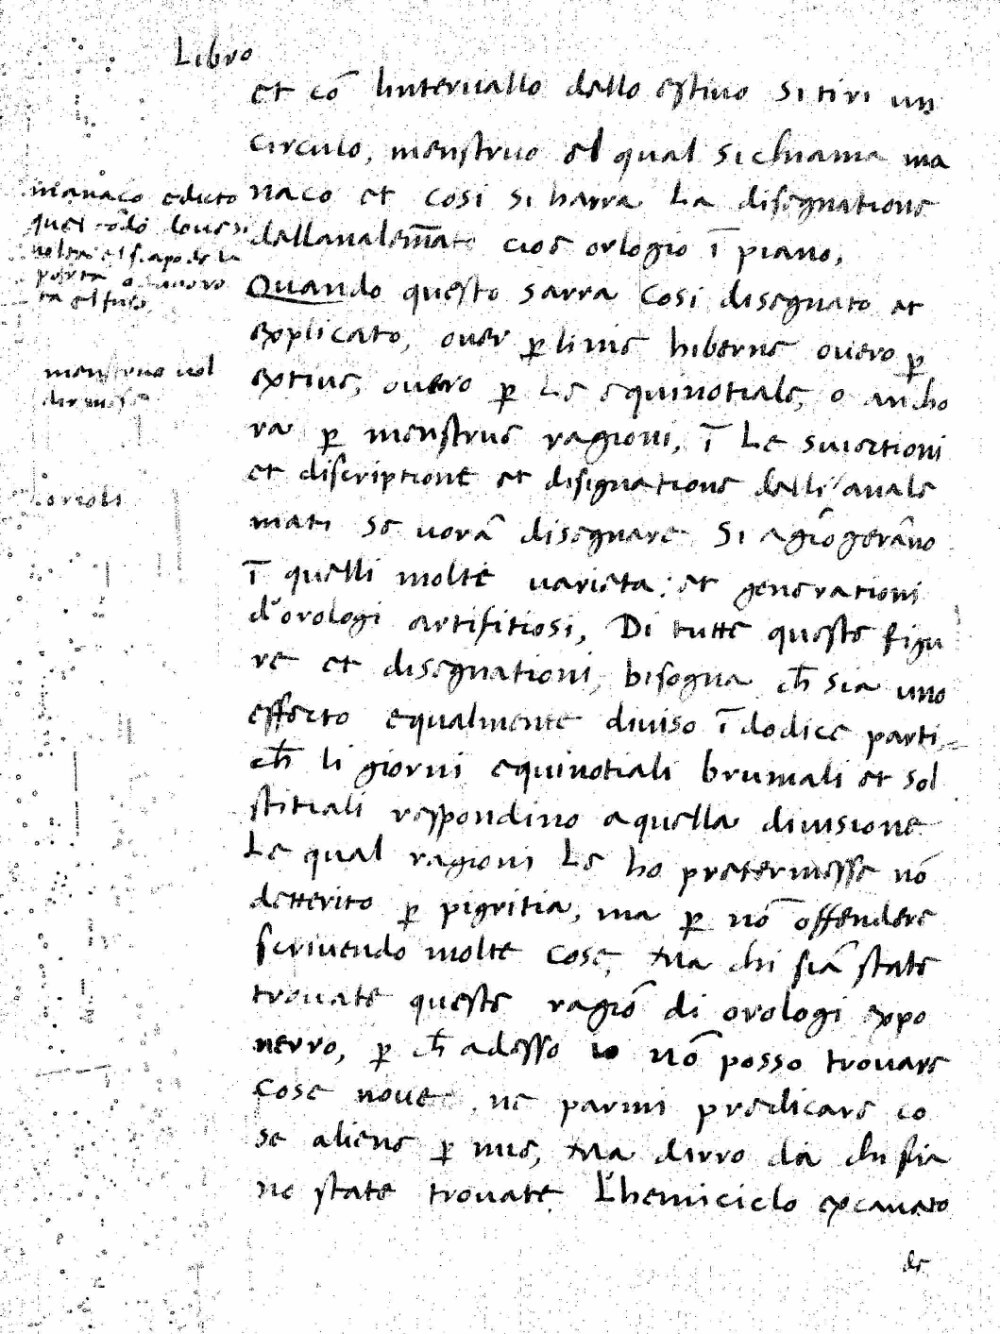 Libro
et cō lintervallo dello estivo si tiri un
circulo, menstruo el qual si chiama ma
naco et cosi si harra La disegnatione
dellanalem̄ate cioe orlogio ī piano,
Quando questo sarra cosi disegnato et
explicato, over ꝑ linie hiberne overo ꝑ
extive, overo ꝑ Le equinotiale, o ancho
ra ꝑ menstrue ragioni, ī Le
et discriptione et disignatione delli anale
mati se vorā disegnare si agiōgerāno
ī quelli molte varieta: et generationi
d'orologi artifitiosi, Di tutte queste figu
re et disegnationi, bisogna ch̄ sia uno
effecto equalmente diviso ī dodice parti
ch̄ li giorni equinotiali brumali et sol
stitiali respondino a quella divisione
Le qual ragioni Le ho pretermesse nō
detterito ꝑ pigritia, ma ꝑ nō offendere
scrivendo molte cose, Ma chi siā state
trovate queste ragiō di orologi expo
nerro, ꝑ ch̄ adesso io nō posso trovare
cose nove ne parmi predicare co
se aliene ꝑ mie, Ma dirro da chi sia
no state trovate. L'hemiciclo excavato
de
manaco e dicto
quel
menstruo vol
orioli